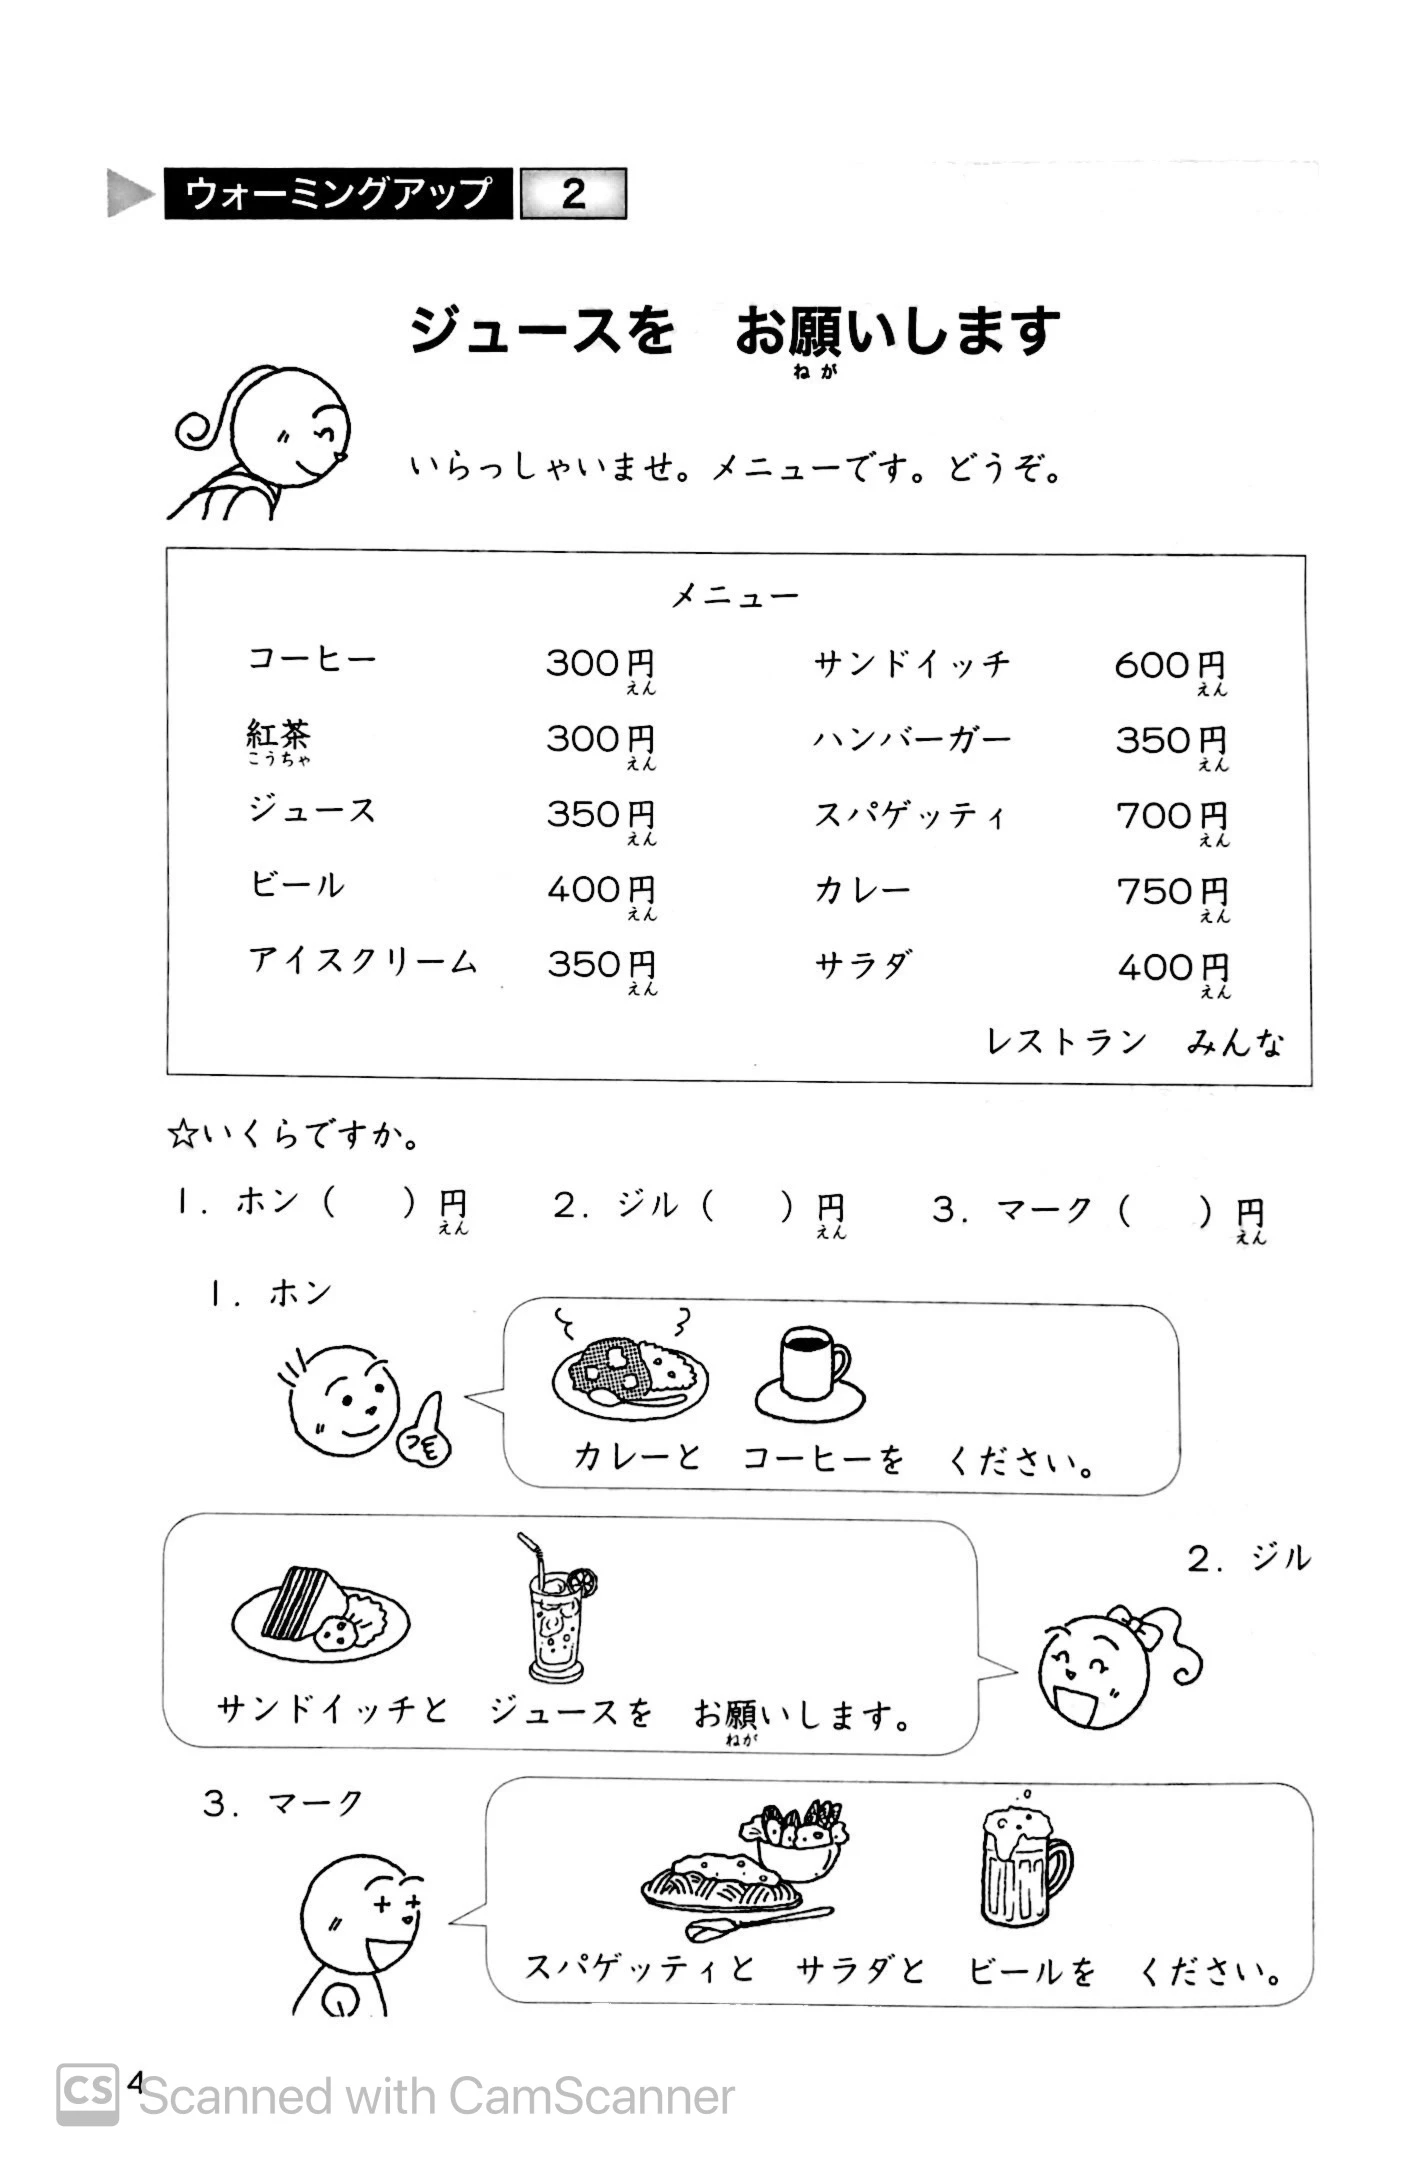 ウォーミングアップ 2
ジュースを お願いします
ねが
いらっしゃいませ。メニューです。どうぞ。
メニュー
コーヒー 300円 サンドイッチ 600円
えん えん
紅茶 300円 ハンバーガー 350円
こうちゃ えん えん
ジュース 350円 スパゲッティ 700円
えん えん
ビール 400円 カレー 750円
えん えん
アイスクリーム 350円 サラダ 400円
えん えん
レストラン みんな
☆いくらですか。
1. ホン( )円 2. ジル( )円 3. マーク( )円
えん えん えん
1. ホン
カレーと コーヒーを ください。
2. ジル
サンドイッチと ジュースを お願いします。
ねが
3. マーク
スパゲッティと サラダと ビールを ください。
4
CS Scanned with CamScanner